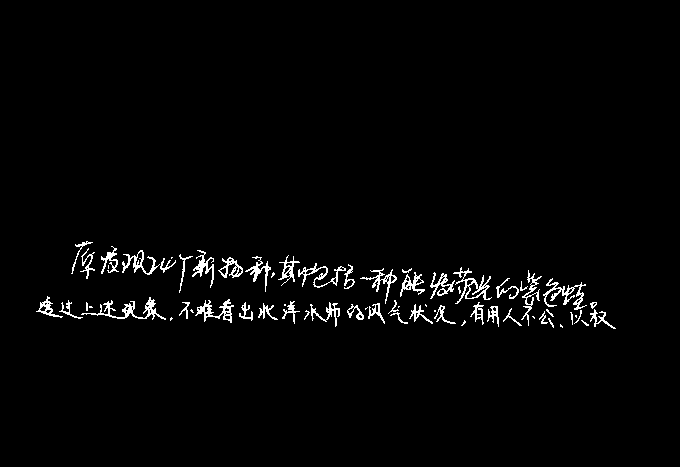 原发现24个新物种,其中包括一种能发荧光的紫色蛙
透过上述现象,不难看出北洋水师的风气状况,有用人不公、以权